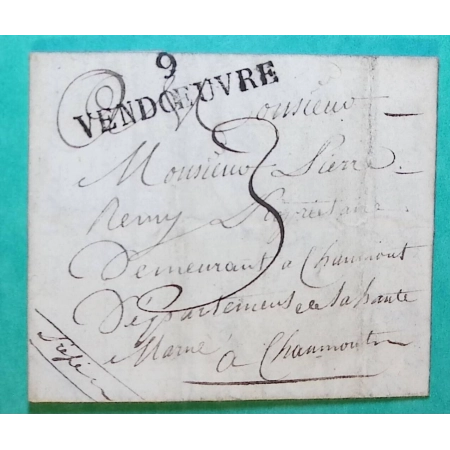 9
VENDŒUVRE
A Monsieur
Monsieur Pierre
Remy Propriétaire
Demeurant a Chaumont
Département de la haute
Marne
à Chaumont
3